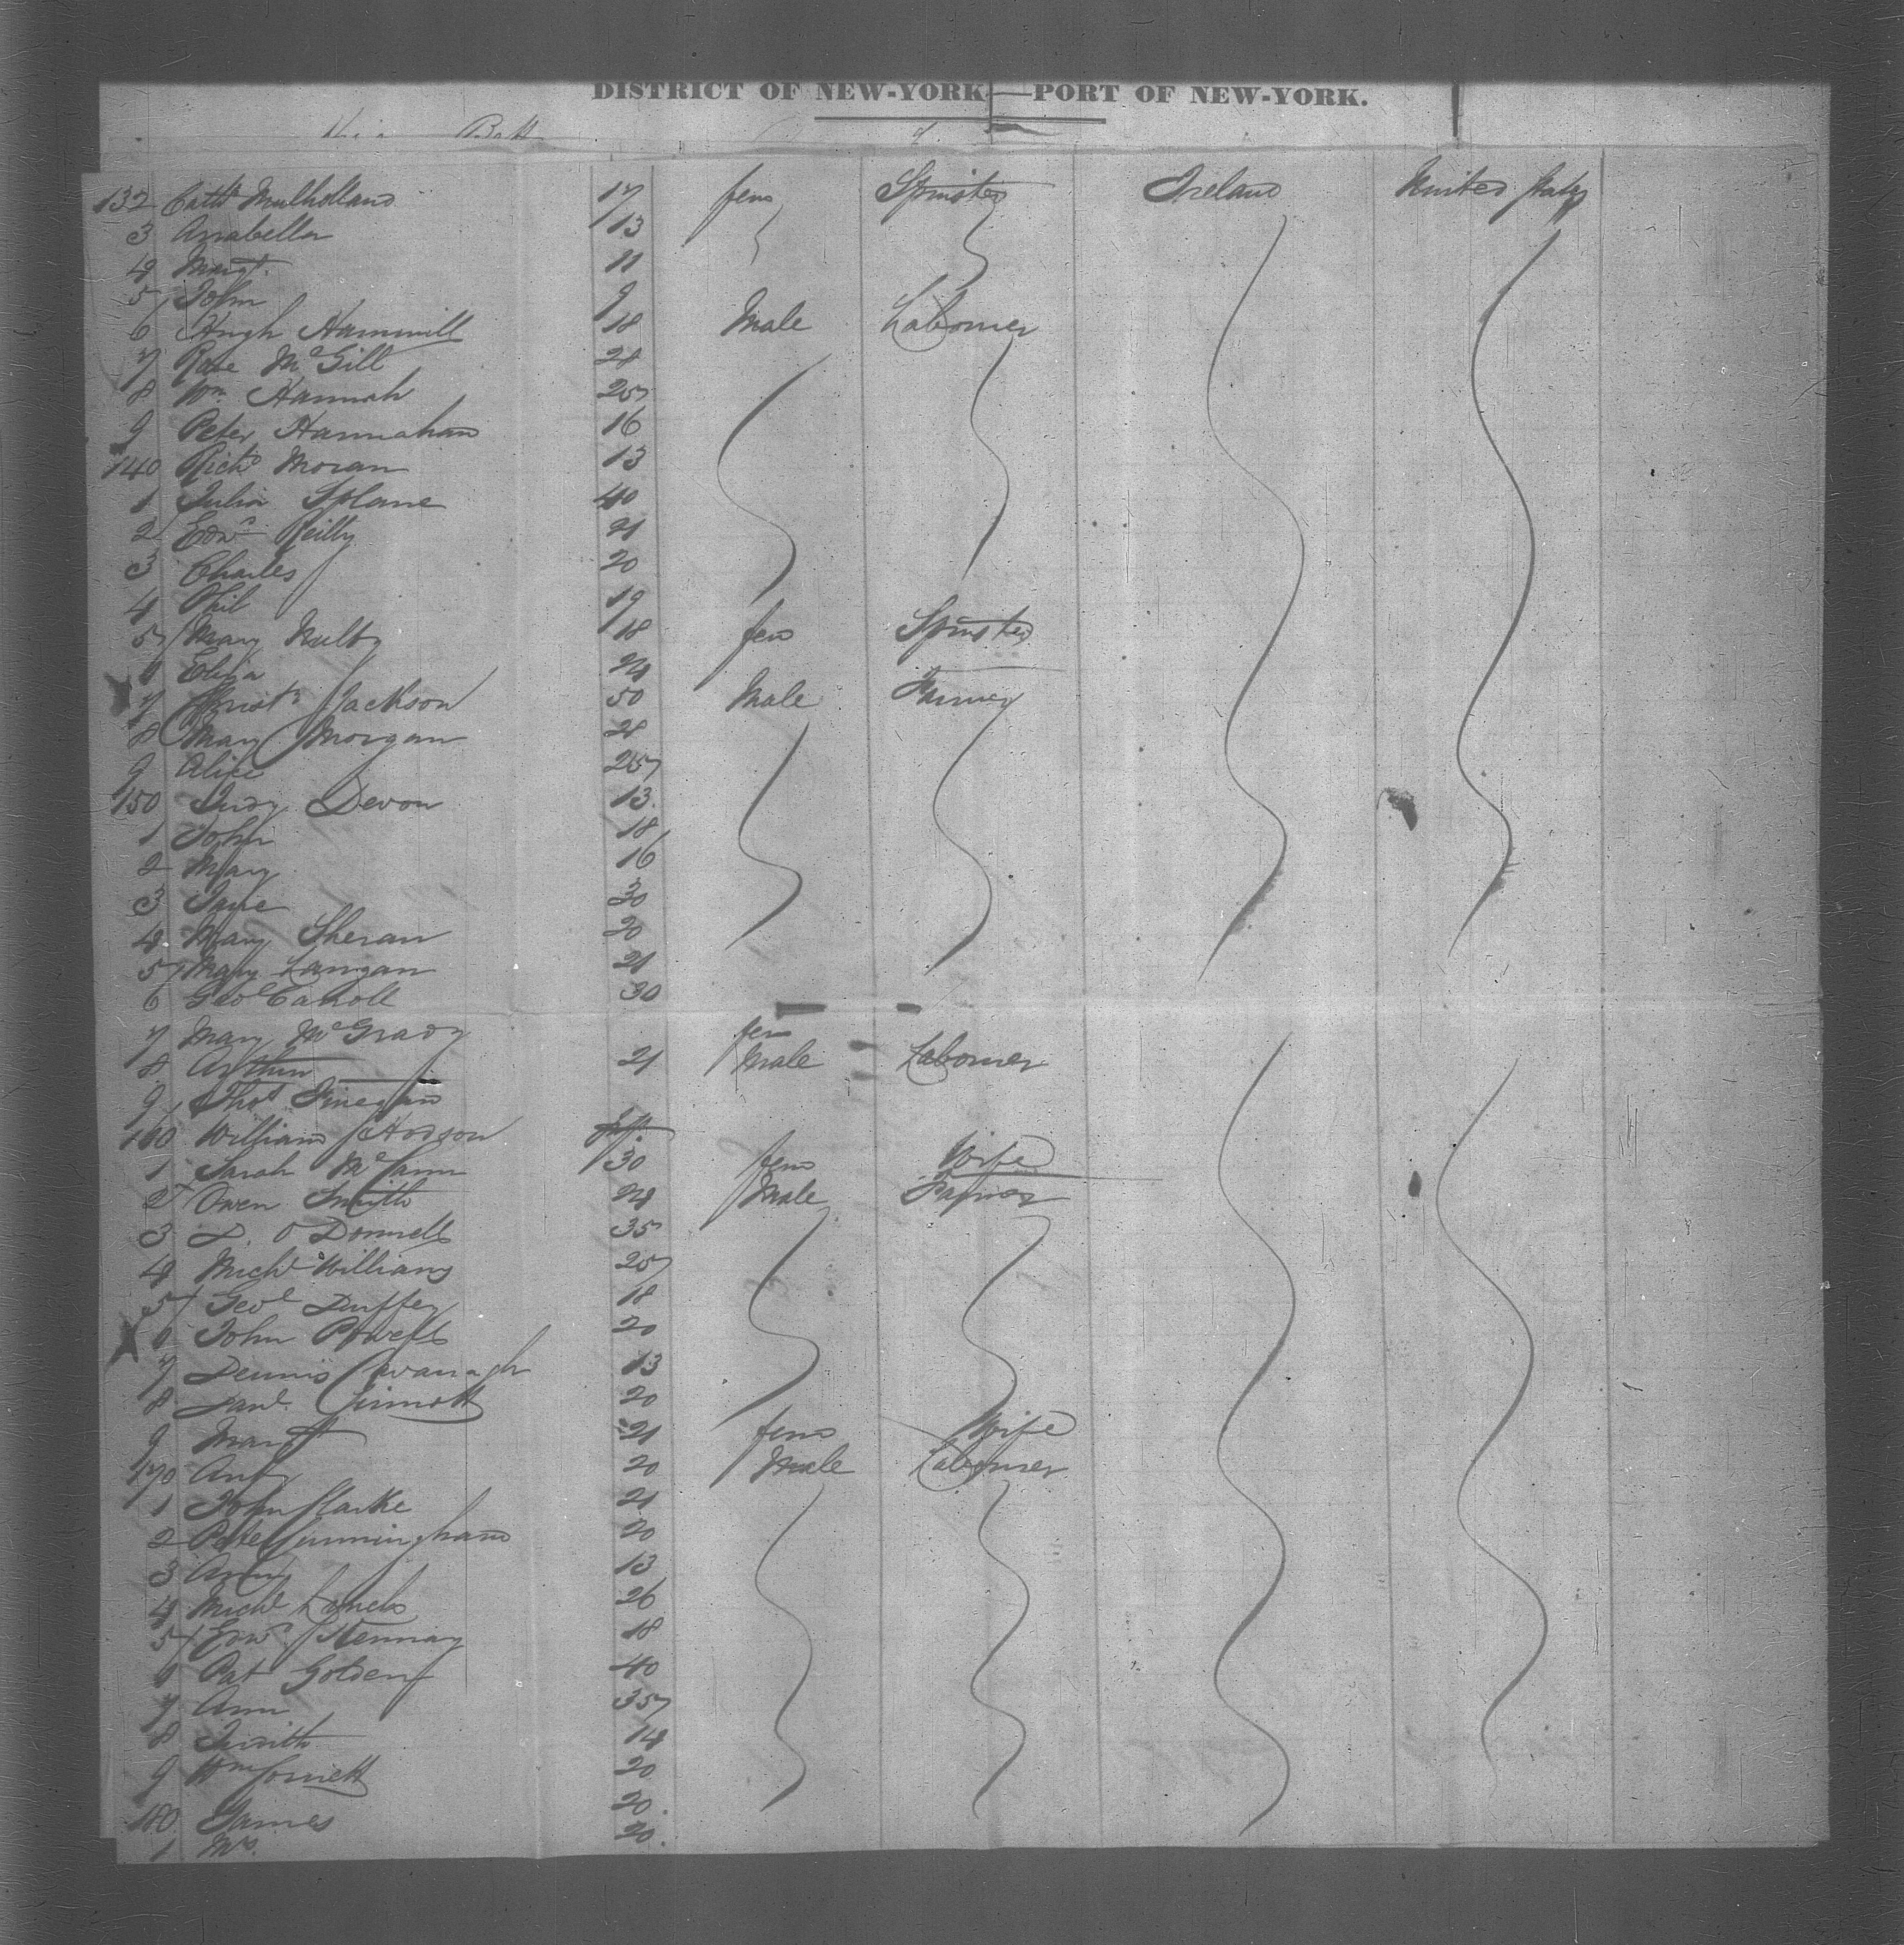 DISTRICT OF NEW-YORK—PORT OF NEW-YORK.
132 Cath Mulholland 17 fem Spinster Ireland United States
3 Anabella 13
4 Margt 11
5 John 9
6 Hugh Hammill 18 Male Labourer
7 Rose McGill 28
8 Wm Hannah 25
9 Peter Hannahan 16
140 Richd Moran 13
1 Julia Splane 40
2 Edwd Reilly 21
3 Charles 20
4 Phil 19
5 Mary Nulty 18 fem Spinster
6 Eliza 24
7 Christr Jackson 50 Male Farmer
8 Mary Morgan 28
9 Alice 25
150 Judy Devon 13
1 John 18
2 Mary 16
3 Jane 30
4 Mary Sheran 20
5 Mary Langan 21
6 Geoe Carroll 30
7 Mary McGrady fem
8 Arthur 21 Male Labourer
9 Thos Finegan
160 William Hodson Inft
1 Sarah McCann 30 fem Wife
2 Owen Smith 24 Male Farmer
3 D. O Donnell 35
4 Michl Williams 25
5 Geoe Duffey 18
6 John Powell 20
7 Dennis Cavanagh 13
8 Danl 20
9 Margt 21 fem Wife
170 Anty 20 Male Labourer
1 John Clarke 21
2 Peter Cunningham 20
3 13
4 Michl Lynch 26
5 Edwd 18
6 Pat Golden 40
7 Ann 35
8 Judith 14
9 Wm Cornett 20
180 James 20
1 Mrs. 20